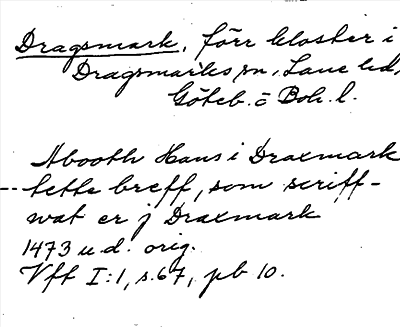 Dragsmark, förr kloster i
Dragsmarks sn, Lane hd,
Göteb. o Boh. l.
Abooth Hans i Draxmark
-- tette breff, som scriff-
wat er j Draxmark
1473 u.d. orig.
Vff I:1, s.67, pb 10.